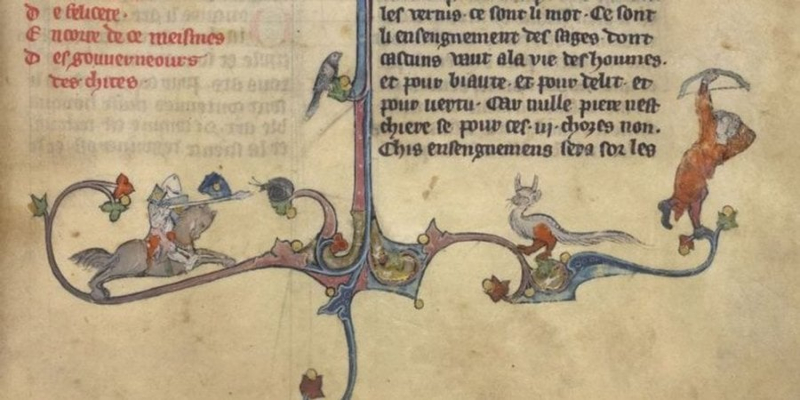 D e felicete.
E ncore de ce meismes
D es gouverneours
des chites
les vertus. ce sont li mot. Ce sont
li enseignement des sages dont
cascuns vaut a la vie des hounnes.
et pour biaute. et pour delit. et
pour uertu. Car nulle piere nest
chiere se pour ces .iii. chozes non.
Chis enseignemens sera sor les